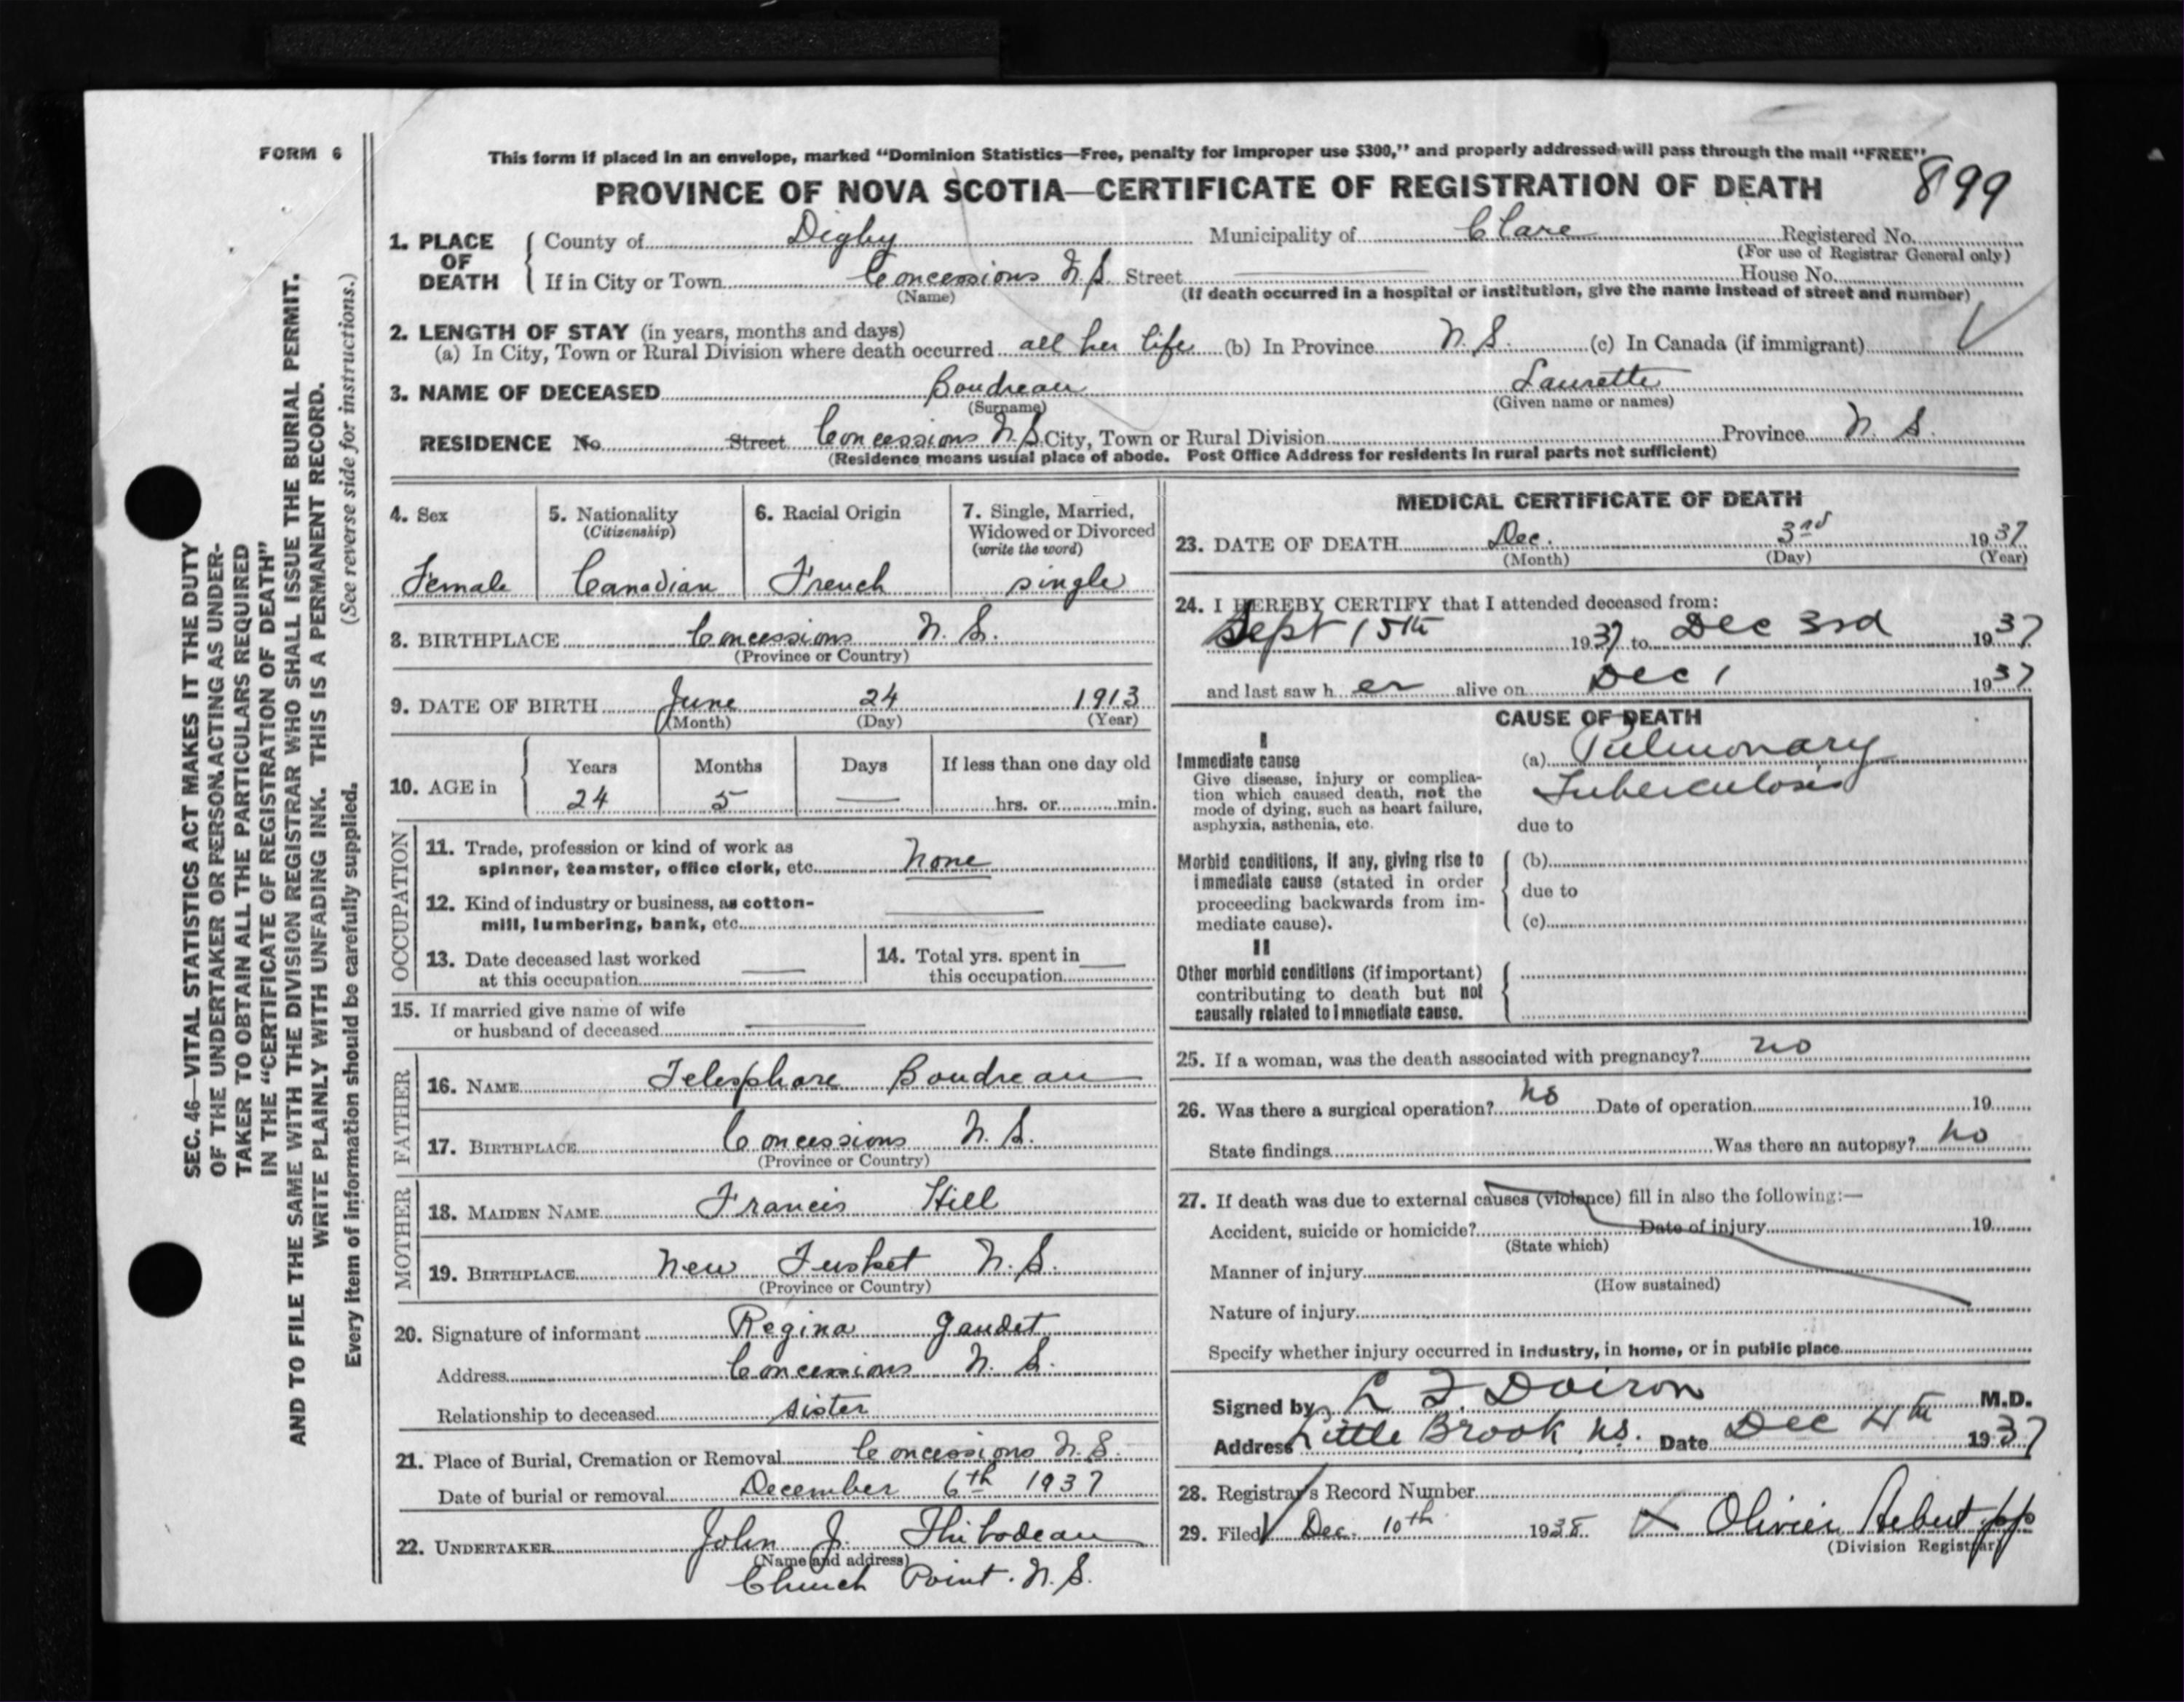 FORM 6
This form if placed in an envelope, marked "Dominion Statistics—Free, penalty for improper use $300," and properly addressed will pass through the mail "FREE"
PROVINCE OF NOVA SCOTIA—CERTIFICATE OF REGISTRATION OF DEATH 899
1. PLACE OF DEATH County of Digby Municipality of Clare Registered No.
(For use of Registrar General only)
If in City or Town Concessions N.S. Street House No.
(Name) (If death occurred in a hospital or institution, give the name instead of street and number)
2. LENGTH OF STAY (in years, months and days)
(a) In City, Town or Rural Division where death occurred all her life (b) In Province N.S. (c) In Canada (if immigrant)
3. NAME OF DECEASED Boudreau Laurette
(Surname) (Given name or names)
RESIDENCE No. Street Concessions N.S. City, Town or Rural Division Province N.S.
(Residence means usual place of abode. Post Office Address for residents in rural parts not sufficient)
4. Sex
Female
5. Nationality
(Citizenship)
Canadian
6. Racial Origin
French
7. Single, Married,
Widowed or Divorced
(write the word)
single
8. BIRTHPLACE Concessions N.S.
(Province or Country)
9. DATE OF BIRTH June 24 1913
(Month) (Day) (Year)
10. AGE in Years Months Days If less than one day old
24 5 — hrs. or min.
OCCUPATION
11. Trade, profession or kind of work as
spinner, teamster, office clerk, etc. None
12. Kind of industry or business, as cotton-
mill, lumbering, bank, etc.
13. Date deceased last worked
at this occupation
14. Total yrs. spent in
this occupation
15. If married give name of wife
or husband of deceased
FATHER
16. NAME Telesphore Boudreau
17. BIRTHPLACE Concessions N.S.
(Province or Country)
MOTHER
18. MAIDEN NAME Francis Hill
19. BIRTHPLACE New Tusket N.S.
(Province or Country)
20. Signature of informant Regina Gaudet
Address Concessions N.S.
Relationship to deceased sister
21. Place of Burial, Cremation or Removal Concessions N.S.
Date of burial or removal December 6th 1937
22. UNDERTAKER John J. Thibodeau
(Name and address)
Church Point. N.S.
MEDICAL CERTIFICATE OF DEATH
23. DATE OF DEATH Dec. 3rd 1937
(Month) (Day) (Year)
24. I HEREBY CERTIFY that I attended deceased from:
Sept 15th 1937 to Dec 3rd 1937
and last saw her alive on Dec 1 1937
CAUSE OF DEATH
I
Immediate cause
Give disease, injury or complica-
tion which caused death, not the
mode of dying, such as heart failure,
asphyxia, asthenia, etc.
(a) Pulmonary
Tuberculosis
due to
Morbid conditions, if any, giving rise to
immediate cause (stated in order
proceeding backwards from im-
mediate cause).
(b)
due to
(c)
II
Other morbid conditions (if important)
contributing to death but not
causally related to immediate cause.
25. If a woman, was the death associated with pregnancy? no
26. Was there a surgical operation? no Date of operation 19
State findings Was there an autopsy? no
27. If death was due to external causes (violence) fill in also the following:—
Accident, suicide or homicide? Date of injury 19
(State which)
Manner of injury
(How sustained)
Nature of injury
Specify whether injury occurred in industry, in home, or in public place
Signed by L F. Doiron M.D.
Address Little Brook N.S. Date Dec 4th 1937
28. Registrar's Record Number
29. Filed Dec. 10th 1938 Olivier Hebert pp
(Division Registrar)
SEC. 46—VITAL STATISTICS ACT MAKES IT THE DUTY
OF THE UNDERTAKER OR PERSON ACTING AS UNDER-
TAKER TO OBTAIN ALL THE PARTICULARS REQUIRED
IN THE "CERTIFICATE OF REGISTRATION OF DEATH"
AND TO FILE THE SAME WITH THE DIVISION REGISTRAR WHO SHALL ISSUE THE BURIAL PERMIT.
WRITE PLAINLY WITH UNFADING INK. THIS IS A PERMANENT RECORD.
Every item of information should be carefully supplied. (See reverse side for instructions.)